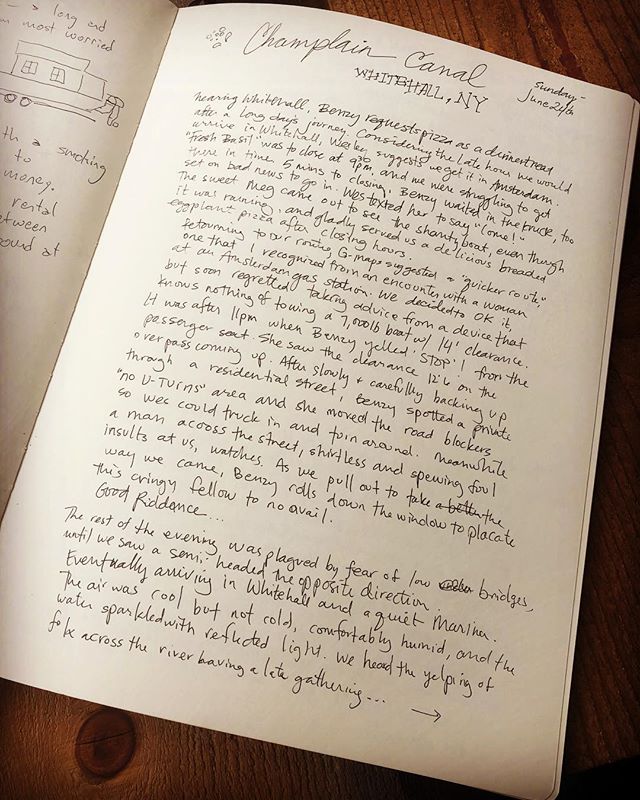 → long and
m most worried
th a smoking
to
money.
rental
between
ound at
Champlain Canal
WHITEHALL, NY
Sunday -
June 24th
nearing Whitehall, Benzy requests pizza as a dinner treat
after a long day's journey. Considering the late hour we would
arrive in Whitehall, Wes suggests we get it in Amsterdam.
"Fresh Basil" was to close at 9pm, and we were struggling to get
there in time. 5 mins to closing, Benzy waited in the truck, too
set on bad news to go in. Wes texted her to say "Come!"
The sweet Meg came out to see the shantyboat, even though
it was raining, and gladly served us a delicious breaded
eggplant pizza after closing hours.
Returning to our route, G-maps suggested a "quicker route",
one that I recognized from an encounter with a woman
at an Amsterdam gas station. We decided to OK it,
but soon regretted taking advice from a device that
knows nothing of towing a 7,000 lb boat w/ 14' clearance.
It was after 11pm when Benzy yelled 'STOP'! from the
passenger seat. She saw the clearance 12'6 on the
overpass coming up. After slowly + carefully backing up
through a residential street, Benzy spotted a private
"no U-Turns" area and she moved the road blockers
so wec could truck in and turn around. Meanwhile
a man across the street, shirtless and spewing foul
insults at us, watches. As we pull out to take a better the
way we came, Benzy rolls down the window to placate
this cringy fellow to no avail.
Good Riddence...
The rest of the evening was plagued by fear of low bridges,
until we saw a semi- headed the opposite direction.
Eventually arriving in Whitehall and a quiet Marina.
The air was cool but not cold, comfortably humid, and the
water sparkled with reflected light. We heard the yelping of
folx across the river having a late gathering... →